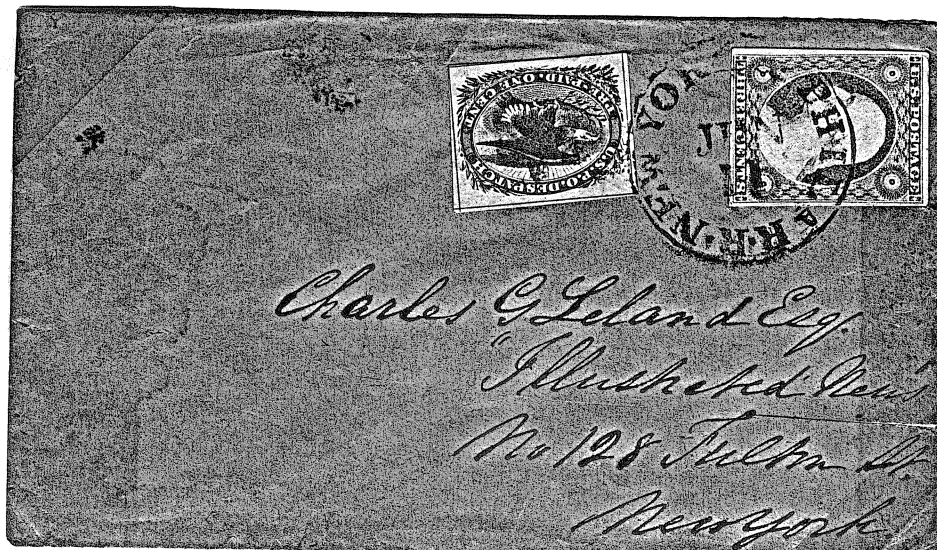 U.S.P.O. DESPATCH
PRE-PAID ONE CENT
U.S. POSTAGE
THREE CENTS
R.R. NEW YOR
Charles G Leland Esq.
"Illustrated News
No 128 Fulton St.
New York